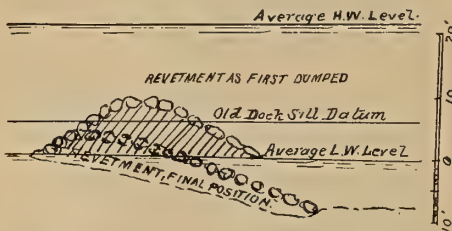 Average H.W. Level.
20'
REVETMENT AS FIRST DUMPED
10
Old Dock Sill Datum
Average L.W. Level
0
REVETMENT, FINAL POSITION.
10'